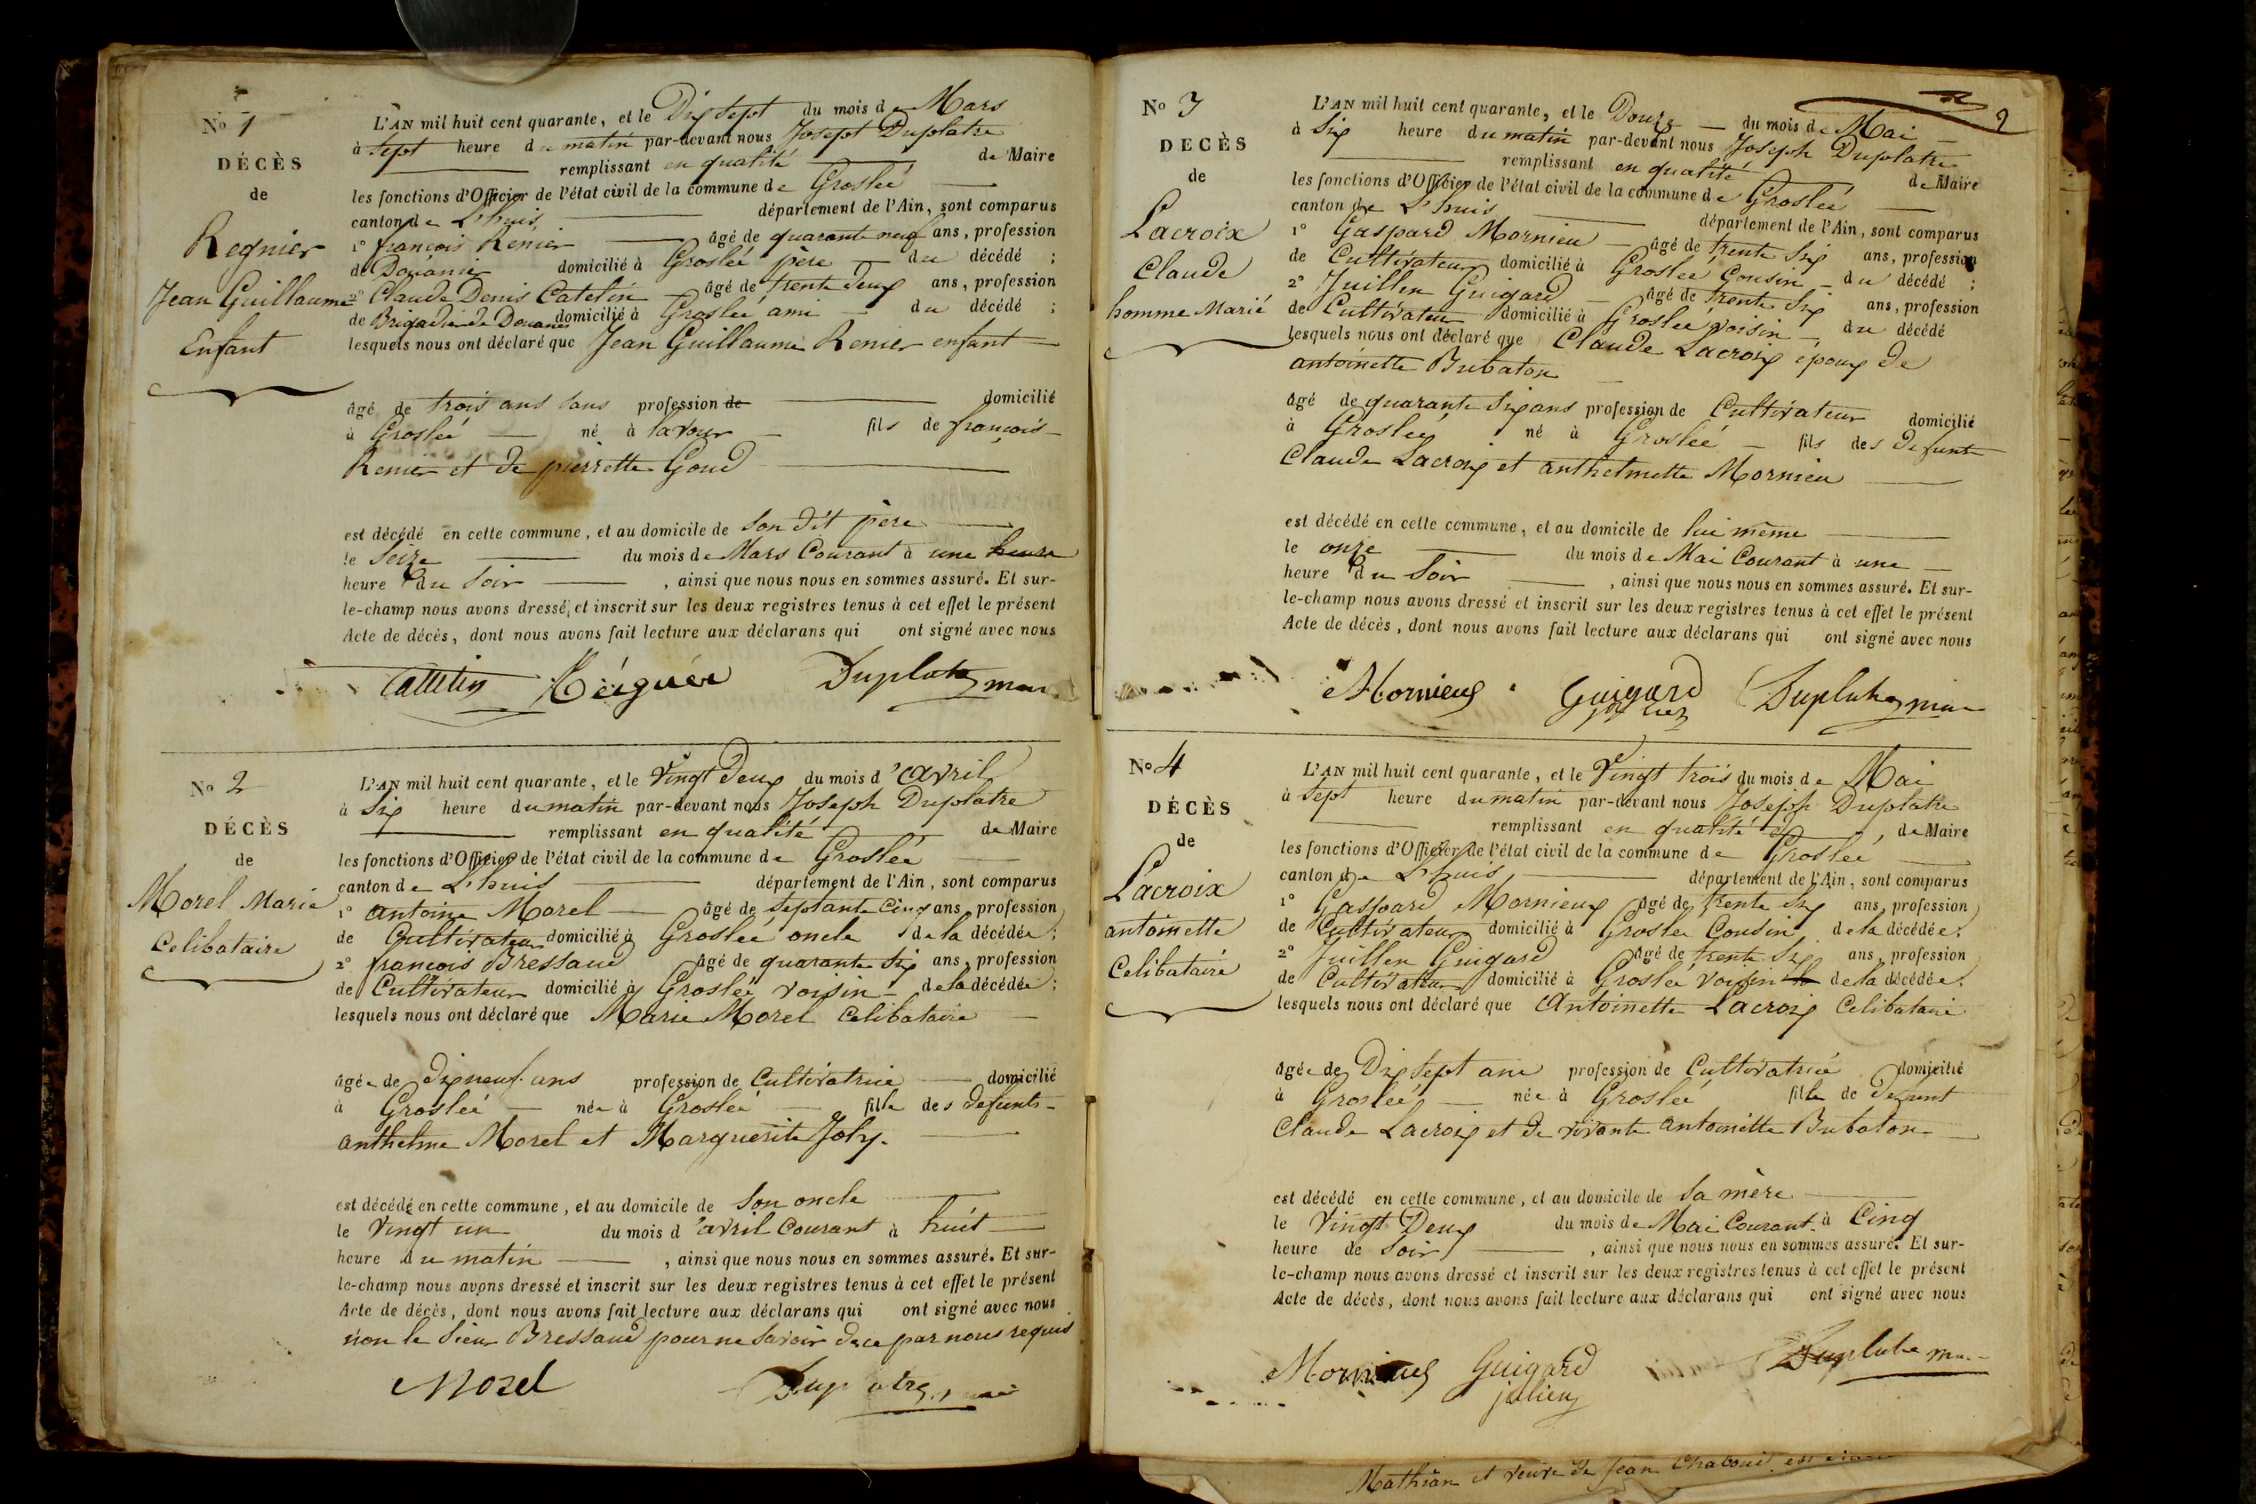 No 1
DÉCÈS
de
Regnier
Jean Guillaume
Enfant
L'AN mil huit cent quarante, et le Dix sept du mois de Mars
à sept heure du matin par-devant nous Joseph Duplatre
remplissant en qualité de Maire
les fonctions d'Officier de l'état civil de la commune de Groslée
canton de L'huis département de l'Ain, sont comparus
1° françois Renier âgé de quarante neuf ans, profession
de Douanier domicilié à Groslée père du décédé ;
2° Claude Denis Catelin âgé de trente deux ans, profession
de Brigadier de Douanes domicilié à Groslée ami du décédé ;
lesquels nous ont déclaré que Jean Guillaume Renier enfant
âgé de trois ans sans profession de domicilié
à Groslée né à lavour fils de françois
Renier et de pierrette Goud
est décédé en cette commune, et au domicile de son dit père
le Seize du mois de Mars Courant à une heure
heure du Soir , ainsi que nous nous en sommes assuré. Et sur-
le-champ nous avons dressé et inscrit sur les deux registres tenus à cet effet le présent
Acte de décès, dont nous avons fait lecture aux déclarans qui ont signé avec nous
Cattelin Réignier Duplatre maire
No 2
DÉCÈS
de
Morel Marie
Celibataire
L'AN mil huit cent quarante, et le Vingt Deux du mois d'avril
à Six heure du matin par-devant nous Joseph Duplatre
remplissant en qualité de Maire
les fonctions d'Officier de l'état civil de la commune de Groslée
canton de L'huis département de l'Ain, sont comparus
1° antoine Morel âgé de septante cinq ans, profession
de Cultivateur domicilié à Groslée oncle de la décédée ;
2° françois Bressaud âgé de quarante Six ans, profession
de Cultivateur domicilié à Groslée voisin de la décédée ;
lesquels nous ont déclaré que Marie Morel Celibataire
âgée de dix neuf ans profession de Cultivatrice domicilié
à Groslée née à Groslée fille des defunts
anthelme Morel et Marguerite Joly.
est décédé en cette commune, et au domicile de Son oncle
le Vingt un du mois d'avril Courant à huit
heure du matin , ainsi que nous nous en sommes assuré. Et sur-
le-champ nous avons dressé et inscrit sur les deux registres tenus à cet effet le présent
Acte de décès, dont nous avons fait lecture aux déclarans qui ont signé avec nous
non le Sieur Bressaud pour ne savoir de ce par nous requis
Morel Duplatre maire
2
No 3
DÉCÈS
de
Lacroix
Claude
homme Marié
L'AN mil huit cent quarante, et le Douze du mois de Mai
à Six heure du matin par-devant nous Joseph Duplatre
remplissant en qualité de Maire
les fonctions d'Officier de l'état civil de la commune de Groslée
canton de L'huis département de l'Ain, sont comparus
1° Gaspard Mornieu âgé de trente Six ans, profession
de Cultivateur domicilié à Groslée Cousin du décédé ;
2° Juillen Guigard âgé de trente Six ans, profession
de Cultivateur domicilié à Groslée voisin du décédé
lesquels nous ont déclaré que Claude Lacroix époux de
antoinette Bubaton
âgé de quarante Six ans profession de Cultivateur domicilié
à Groslée né à Groslée fils des defunts
Claude Lacroix et anthelmette Mornieu
est décédé en cette commune, et au domicile de lui même
le onze du mois de Mai Courant à une
heure du Soir , ainsi que nous nous en sommes assuré. Et sur-
le-champ nous avons dressé et inscrit sur les deux registres tenus à cet effet le présent
Acte de décès, dont nous avons fait lecture aux déclarans qui ont signé avec nous
Mornieux Guigard Duplatre maire
No 4
DÉCÈS
de
Lacroix
antoinette
Celibataire
L'AN mil huit cent quarante, et le Vingt trois du mois de Mai
à Sept heure du matin par-devant nous Joseph Duplatre
remplissant en qualité de Maire
les fonctions d'Officier de l'état civil de la commune de Groslée
canton de L'huis département de l'Ain, sont comparus
1° Gaspard Mornieux âgé de trente Six ans, profession
de Cultivateur domicilié à Groslée Cousin de la décédée ;
2° Juillen Guigard âgé de trente Six ans, profession
de Cultivateur domicilié à Groslée voisin de la décédée.
lesquels nous ont déclaré que Antoinette Lacroix Celibataire
âgée de Dix sept ans profession de Cultivatrice domicilié
à Groslée née à Groslée fille de defunt
Claude Lacroix et de vivante antoinette Bubaton
est décédé en cette commune, et au domicile de Sa mère
le Vingt Deux du mois de Mai Courant à Cinq
heure de Soir , ainsi que nous nous en sommes assuré. Et sur-
le-champ nous avons dressé et inscrit sur les deux registres tenus à cet effet le présent
Acte de décès, dont nous avons fait lecture aux déclarans qui ont signé avec nous
Mornieux Guigard Duplatre maire
julien
Mathian et veuve de Jean Chaboud